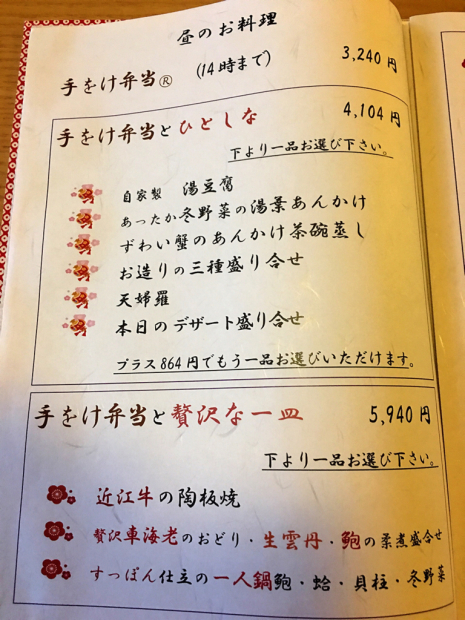 昼のお料理
(14時まで)
手をけ弁当® 3,240円
手をけ弁当とひとしな 4,104円
下より一品お選び下さい。
自家製 湯豆腐
あったか冬野菜の湯葉あんかけ
ずわい蟹のあんかけ茶碗蒸し
お造りの三種盛り合せ
天婦羅
本日のデザート盛り合せ
プラス864円でもう一品お選びいただけます。
手をけ弁当と贅沢な一皿 5,940円
下より一品お選び下さい。
近江牛の陶板焼
贅沢車海老のおどり・生雲丹・鮑の柔煮盛合せ
すっぽん仕立の一人鍋鮑・蛤・貝柱・冬野菜